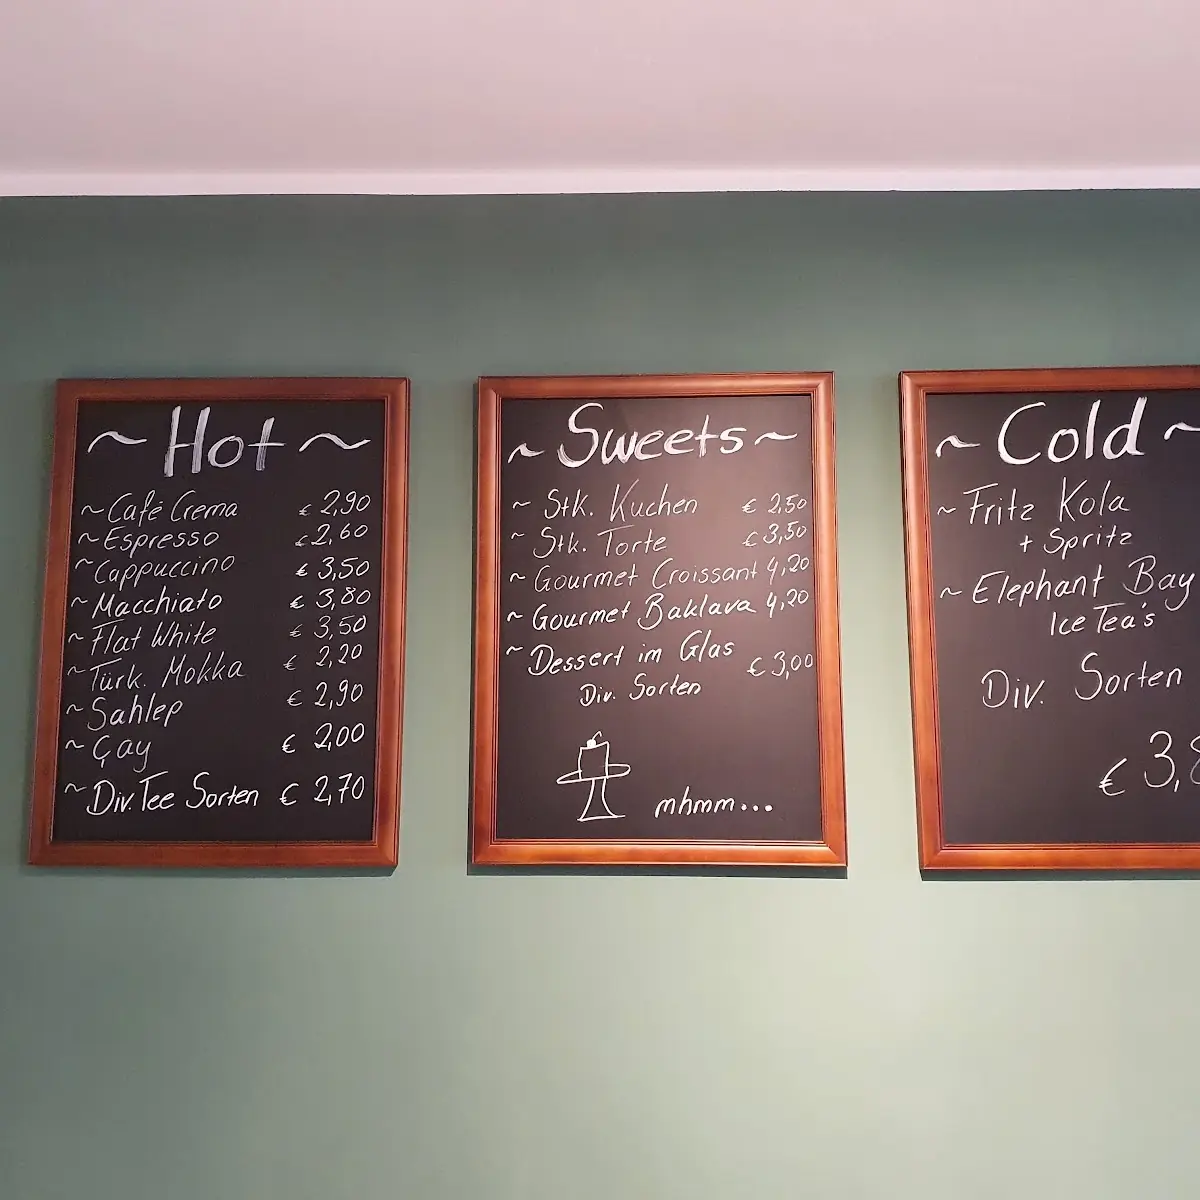 ~ Hot ~
~ Café Crema € 2,90
~ Espresso € 2,60
~ Cappuccino € 3,50
~ Macchiato € 3,80
~ Flat White € 3,50
~ Türk. Mokka € 2,20
~ Sahlep € 2,90
~ Çay € 2,00
~ Div. Tee Sorten € 2,70
~ Sweets ~
~ Stk. Kuchen € 2,50
~ Stk. Torte € 3,50
~ Gourmet Croissant 4,20
~ Gourmet Baklava 4,20
~ Dessert im Glas € 3,00
Div. Sorten
mhmm...
~ Cold ~
~ Fritz Kola
+ Spritz
~ Elephant Bay
Ice Tea's
Div. Sorten
€ 3,